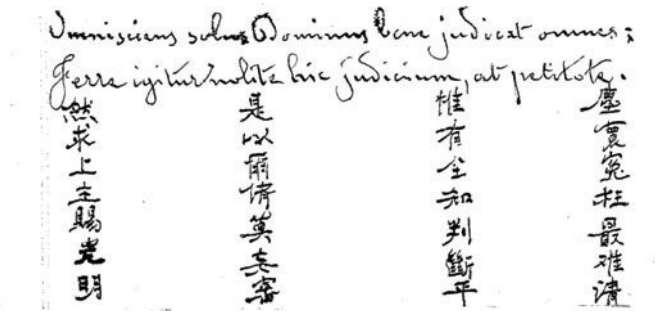 Omnisciens solus Dominus bene judicat omnes;
Ferre igitur nolite hic judicium, at petitote.
塵寰冤枉最难清
惟有全知判斷平
是以爾儕莫妄審
然求上主賜光明